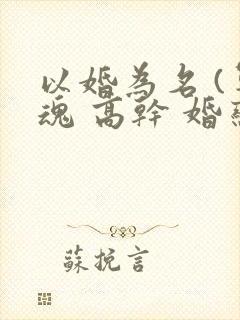 以婚為名(
魂 高幹 婚
蘇挽言